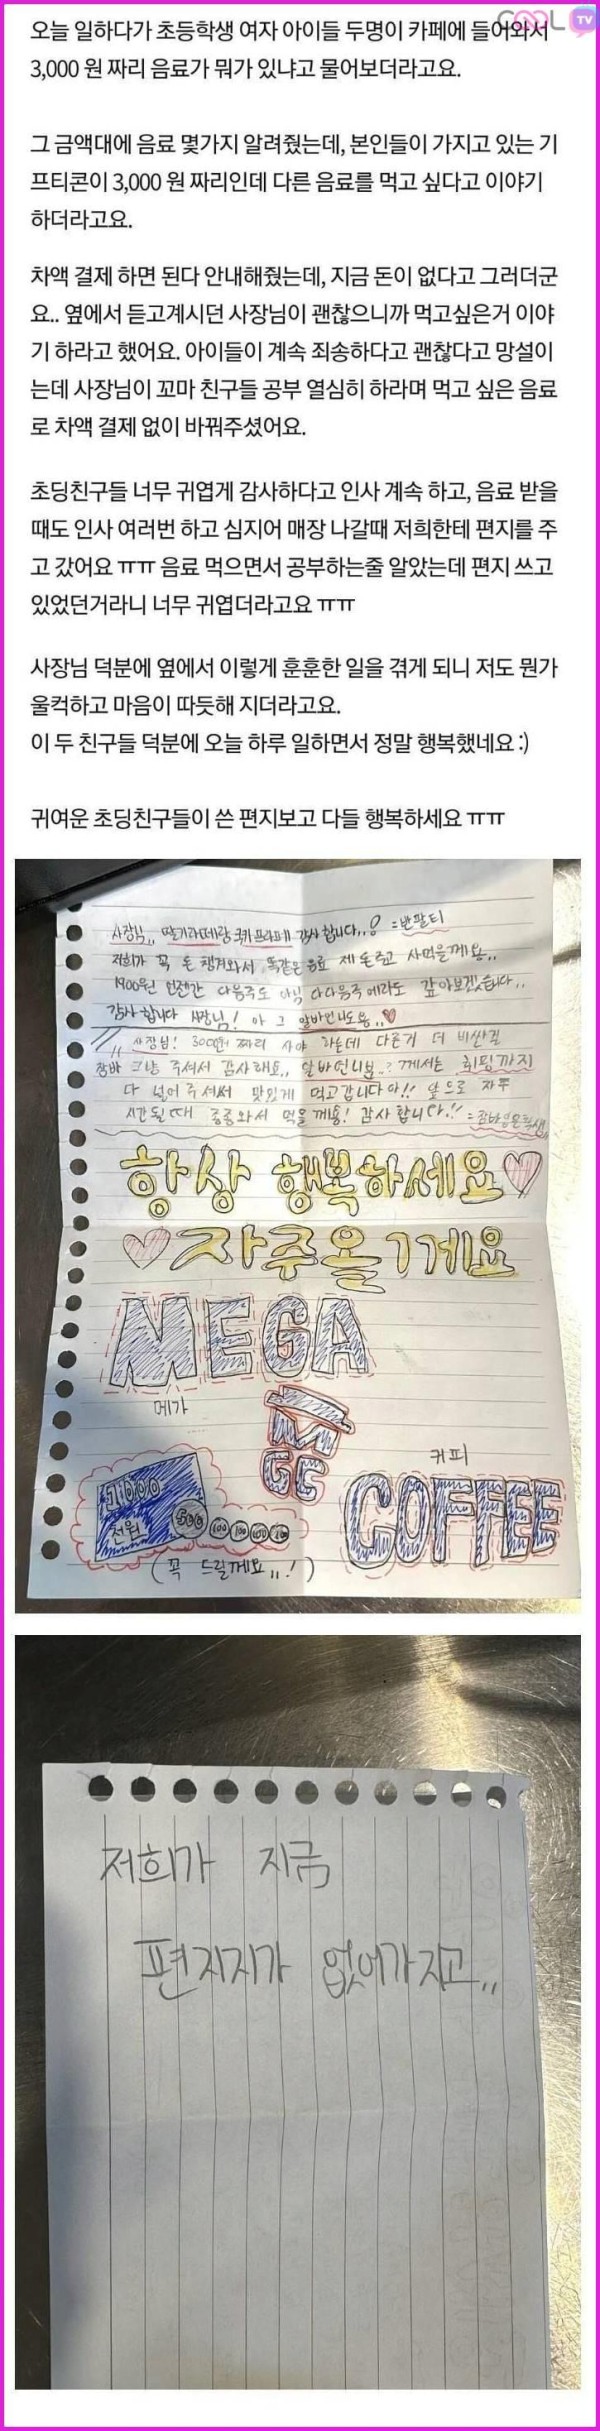 COOL TV
오늘 일하다가 초등학생 여자 아이들 두명이 카페에 들어와서
3,000 원 짜리 음료가 뭐가 있냐고 물어보더라고요.
그 금액대에 음료 몇가지 알려줬는데, 본인들이 가지고 있는 기
프티콘이 3,000 원 짜리인데 다른 음료를 먹고 싶다고 이야기
하더라고요.
차액 결제 하면 된다 안내해줬는데, 지금 돈이 없다고 그러더군
요.. 옆에서 듣고계시던 사장님이 괜찮으니까 먹고싶은거 이야
기 하라고 했어요. 아이들이 계속 죄송하다고 괜찮다고 망설이
는데 사장님이 꼬마 친구들 공부 열심히 하라며 먹고 싶은 음료
로 차액 결제 없이 바꿔주셨어요.
초딩친구들 너무 귀엽게 감사하다고 인사 계속 하고, 음료 받을
때도 인사 여러번 하고 심지어 매장 나갈때 저희한테 편지를 주
고 갔어요 ㅠㅠ 음료 먹으면서 공부하는줄 알았는데 편지 쓰고
있었던거라니 너무 귀엽더라고요 ㅠㅠ
사장님 덕분에 옆에서 이렇게 훈훈한 일을 겪게 되니 저도 뭔가
울컥하고 마음이 따듯해 지더라고요.
이 두 친구들 덕분에 오늘 하루 일하면서 정말 행복했네요 :)
귀여운 초딩친구들이 쓴 편지보고 다들 행복하세요 ㅠㅠ
사장님,, 딸기라떼랑 쿠키프라페 감사 합니다,,! =반팔티
저희가 꼭 돈 챙겨와서 똑같은 음료 제 돈주고 사먹을께용..
1900원 언젠간 다음주도 아닌 다다음주에라도 갚아보겠습니다,,
감사 합니다 사장님! 아 그 알바언니도용..♥
사장님! 3000원 짜리 사야 하는데 다른거 더 비싼걸
그냥 주셔서 감사해요,, 알바언니분..? 께서는 휘핑까지
다 넣어 주셔서 맛있게 먹고갑니다아!! 앞으로 자주
시간될때 종종와서 먹을께용! 감사 합니다!!
항상 행복하세요♥
♥자주올게요
MEGA
메가
M
GC
커피
COFFEE
1000
천원
500 100 100 100 100
(꼭 드릴께요,,!)
저희가 지금
편지지가 없어가지고,,